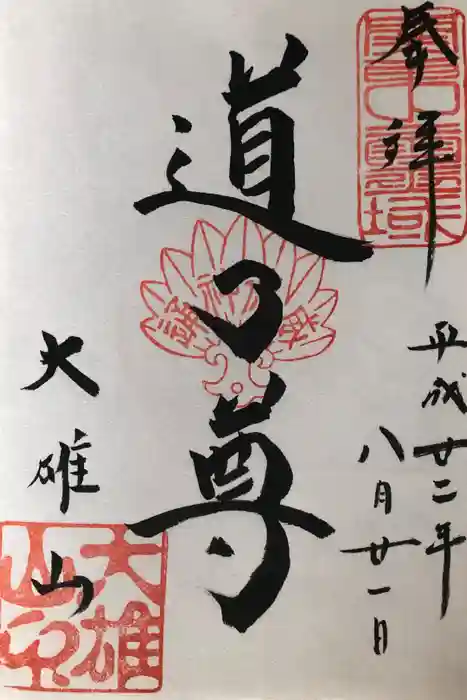 奉拝
平成廿二年
八月廿一日
道了尊
大雄山
大雄
山印